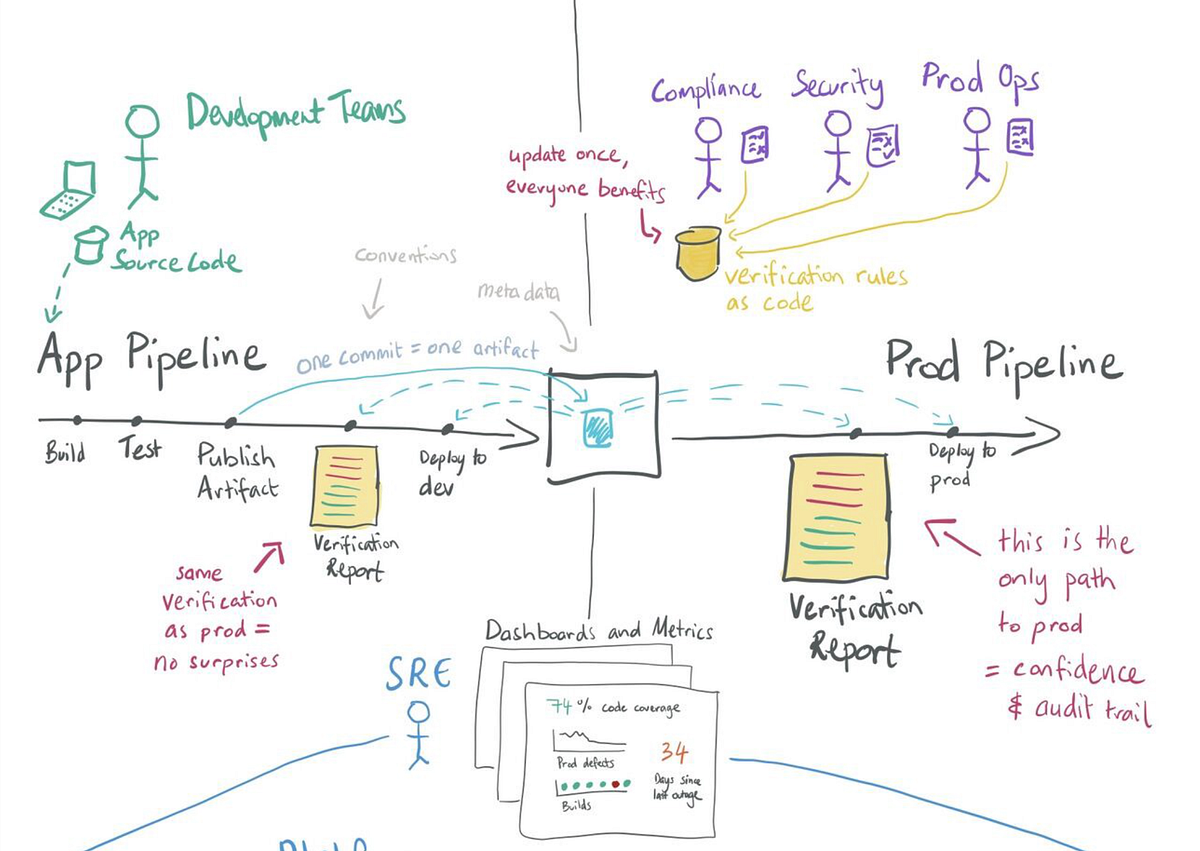 Development Teams
App
Source Code
Compliance
Security
Prod Ops
update once,
everyone benefits
verification rules
as code
conventions
metadata
App Pipeline
one commit = one artifact
Prod Pipeline
Build
Test
Publish
Artifact
Deploy to
dev
Verification
Report
same
verification
as prod =
no surprises
Deploy to
prod
Verification
Report
this is the
only path
to prod
= confidence
& audit trail
Dashboards and Metrics
SRE
74% code coverage
Prod defects
34
Days since
last outage
Builds